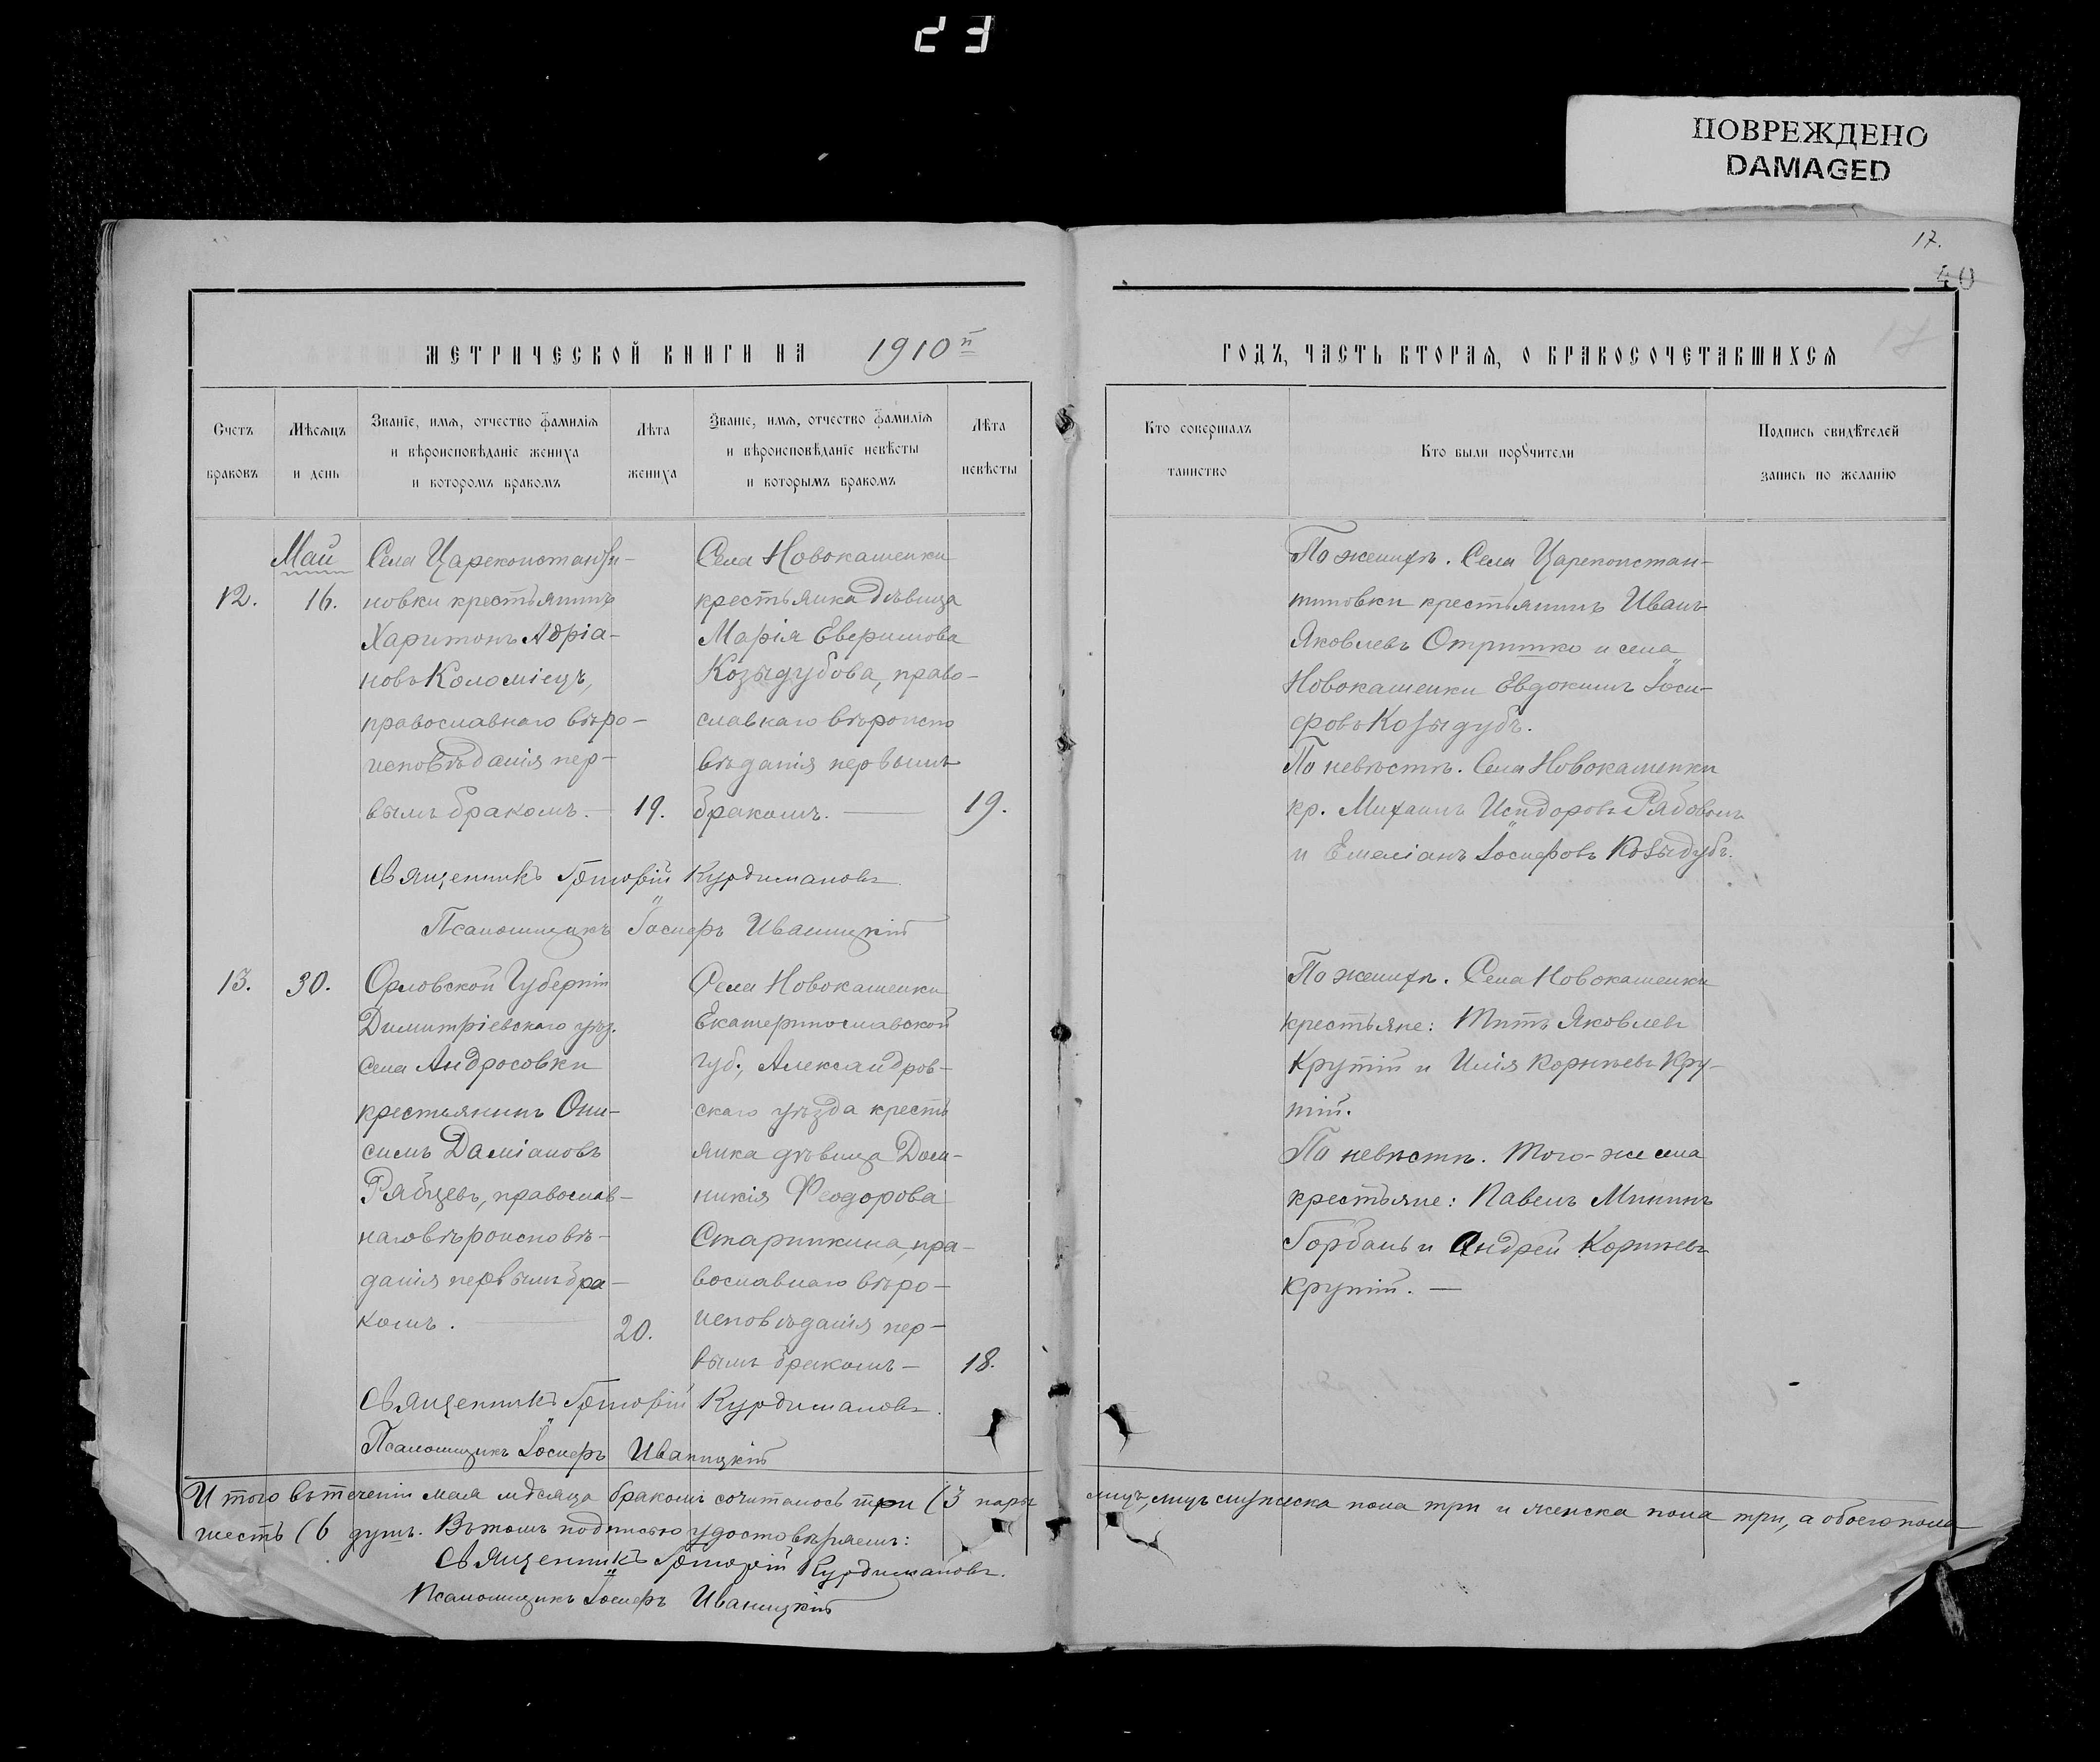 23
ПОВРЕЖДЕНО
DAMAGED
17.
40
17
МЕТРИЧЕСКОЙ КНИГИ НА 1910й
ГОДЪ, ЧАСТЬ ВТОРАЯ, О БРАКОСОЧЕТАВШИХСЯ
Счетъ браковъ
Мѣсяцъ и день
Званіе, имя, отчество фамилія
и вѣроисповѣданіе жениха
и которомъ бракомъ
Лѣта жениха
Званіе, имя, отчество фамилія
и вѣроисповѣданіе невѣсты
и которымъ бракомъ
Лѣта невѣсты
Кто совершалъ таинство
Кто были поручители
Подпись свидѣтелей
запись по желанію
Май
12. 16.
Села Цареконстанти-
новки крестьянинъ
Харитонъ Адріа-
новъ Коломіецъ,
православнаго вѣро-
исповѣданія пер-
вымъ бракомъ. — 19.
Села Новокаменки
крестьянка дѣвица
Марія Евфимова
Козыдубова, право-
славнаго вѣроиспо
вѣданія первымъ
бракомъ. — 19.
По женихѣ. Села Цареконстан-
тиновки крестьянинъ Иванъ
Яковлевъ Отришко и села
Новокаменки Евдокимъ Іоси-
фовъ Козыдубъ.
По невѣстѣ. Села Новокаменки
кр. Михаилъ Исидоровъ Рябоволъ
и Емеліанъ Іосифовъ Козыдубъ.
Священникъ Григорій Курдимановъ
Псаломщикъ Іосифъ Иваницкій
13. 30.
Орловской Губерніи
Димитріевскаго уѣз.
села Андросовки
крестьянинъ Они-
симъ Даміановъ
Рябцевъ, православ-
наго вѣроисповѣ-
данія первымъ бра-
комъ. — 20.
Села Новокаменки
Екатеринославской
губ., Александров-
скаго уѣзда кресть
янка дѣвица Дом-
никія Феодорова
Старикина, пра-
вославнаго вѣро-
исповѣданія пер-
вымъ бракомъ — 18.
По женихѣ. Села Новокаменки
крестьяне: Титъ Яковлевъ
Крутій и Илія Корніевъ Кру-
тій.
По невѣстѣ. Того-же села
крестьяне: Павелъ Мининъ
Горбань и Андрей Корніевъ
Крутій. —
Священникъ Григорій Курдимановъ.
Псаломщикъ Іосифъ Иваницкій
Итого въ теченіи мая мѣсяца бракомъ сочиталось три (3 пары лицъ, мужеска пола три и женска пола три, а обоего пола
шесть (6 душъ. Въ томъ подписью удостовѣряемъ:
Священникъ Григорій Курдимановъ.
Псаломщикъ Іосифъ Иваницкій